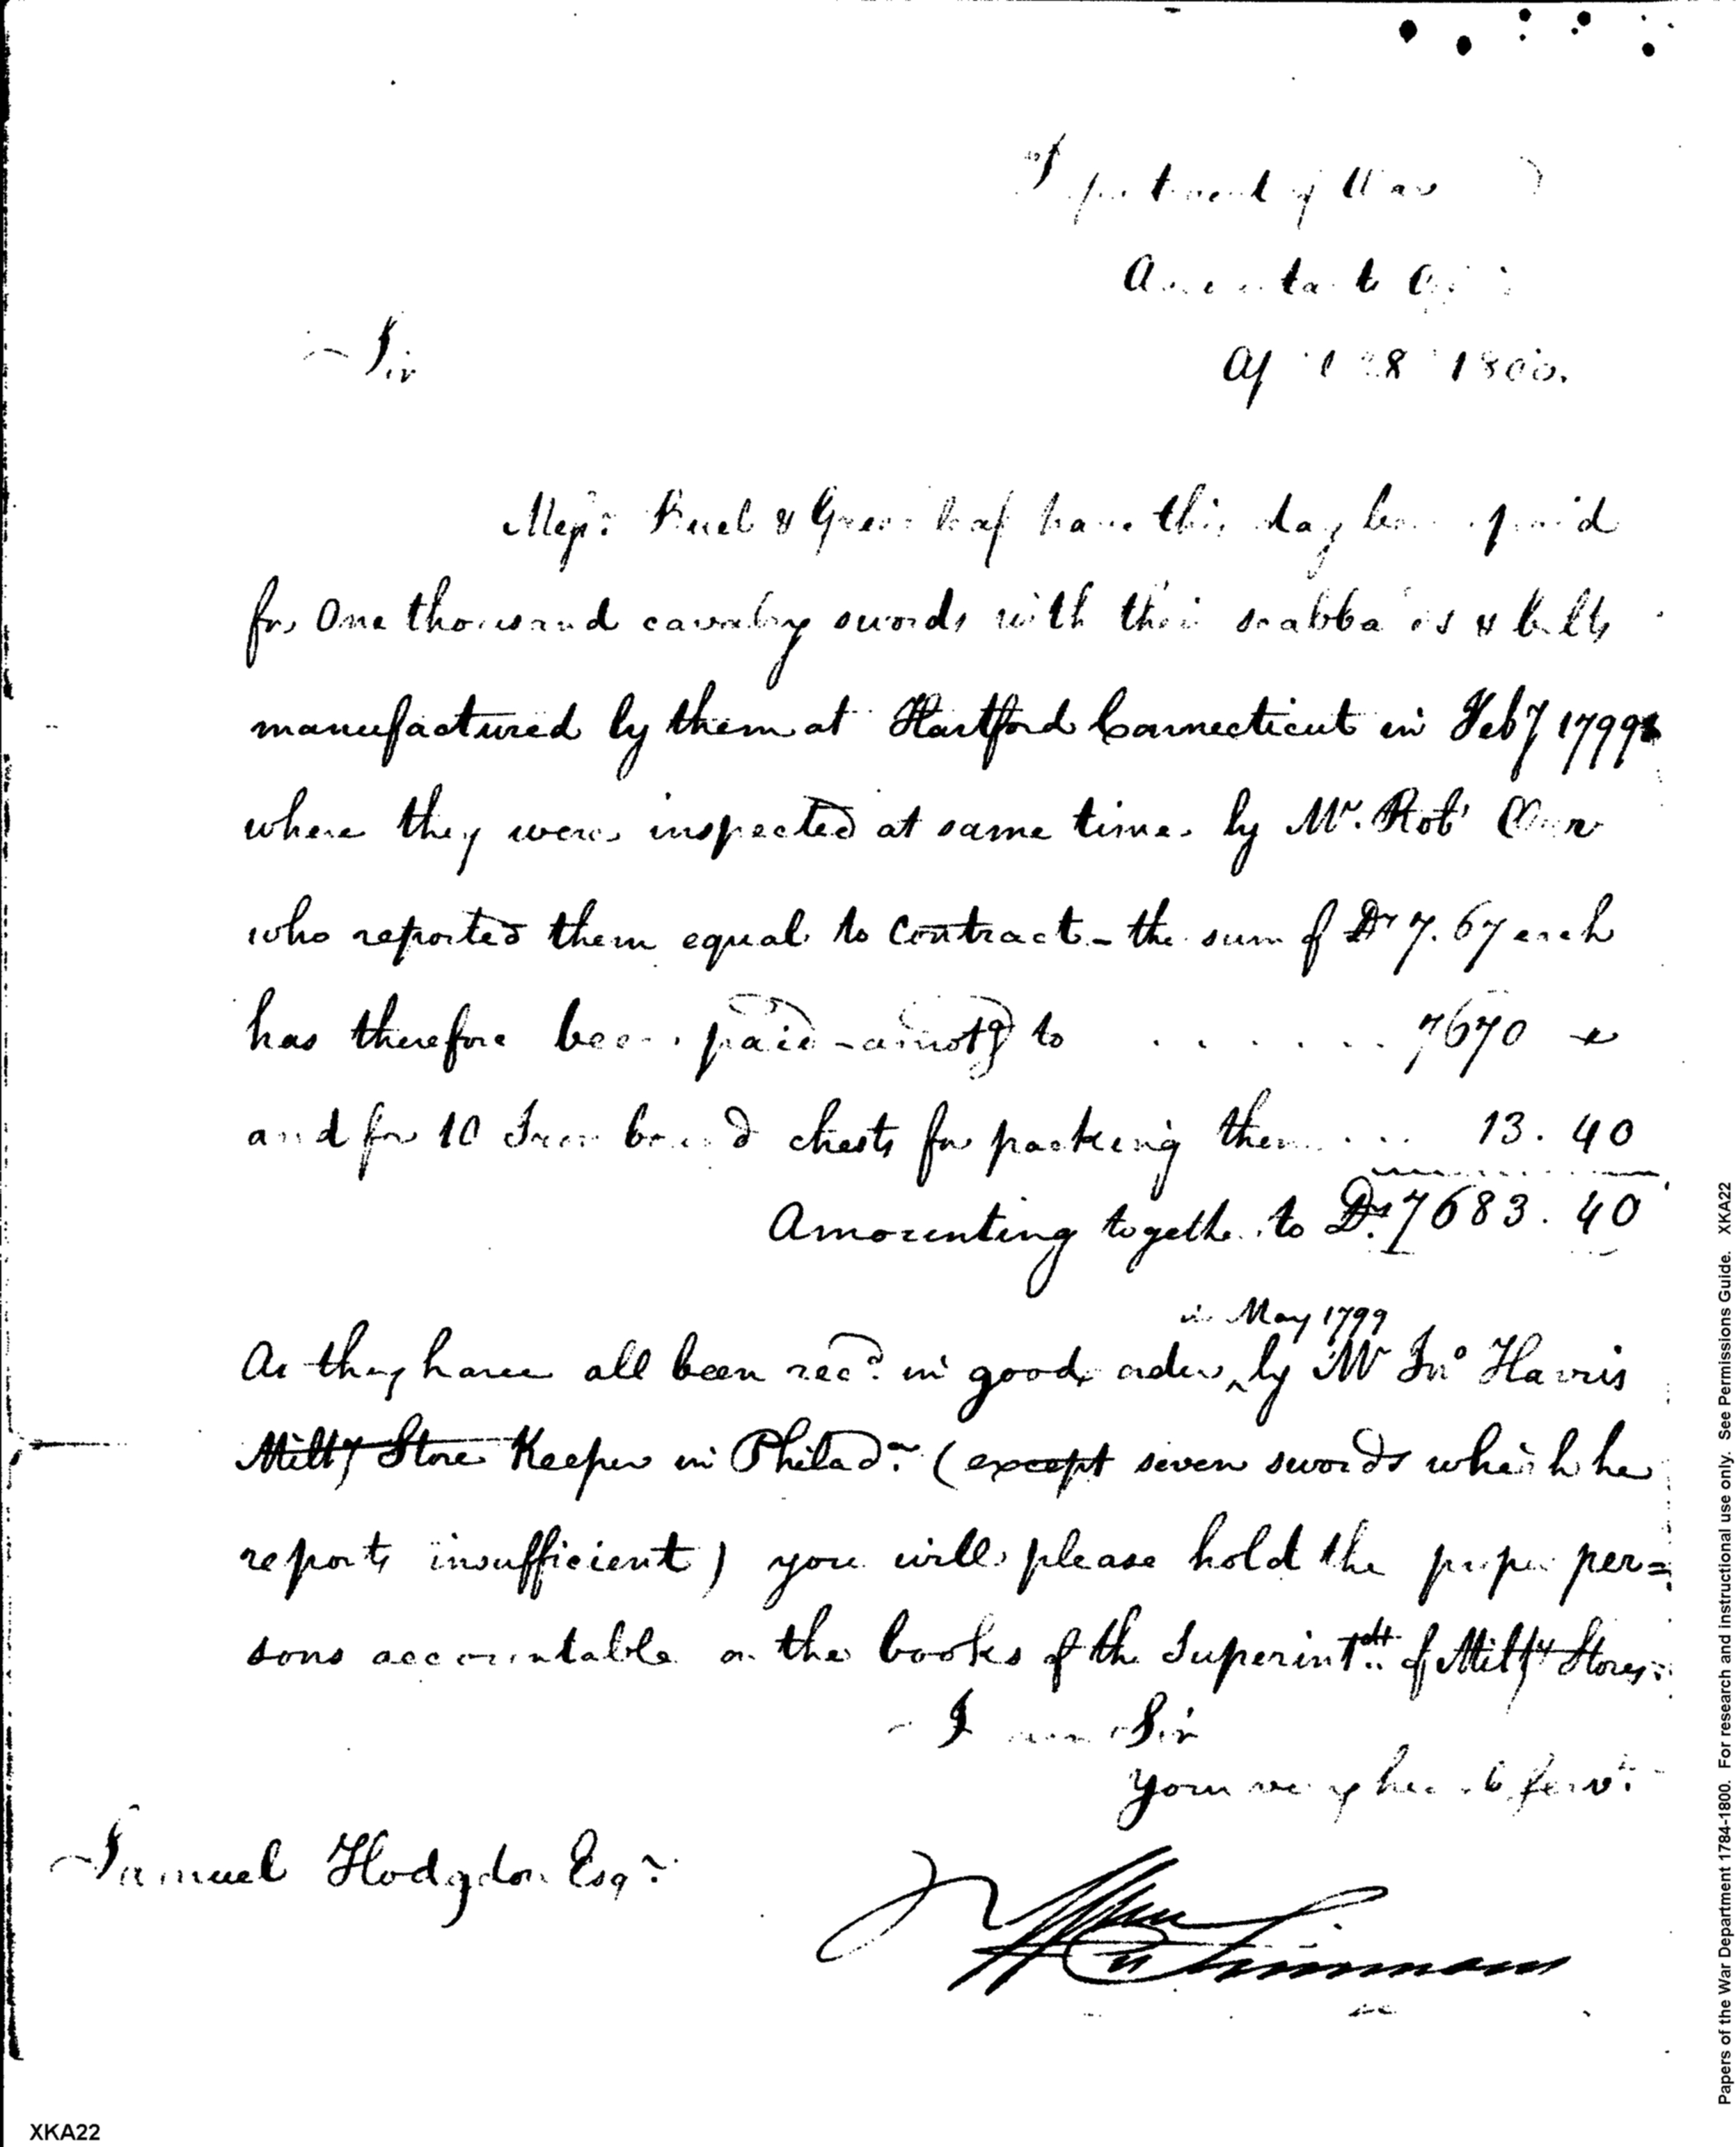 Department of War
Accountants Office
April 28 1800.
Sir
Messrs. Buel & Greenleaf have this day been paid
for One thousand cavalry swords with their scabbards & belts
manufactured by them at Hartford Connecticut in Feby 1799
where they were inspected at same time by Mr. Robt Orr
who reported them equal to Contract - the sum of Drs 7.67 each
has therefore been paid - amotg to . . . . . . 7670
and for 10 Iron bound chests for packing them . . . 13. 40
Amounting together to Drs. 7683. 40
in May 1799
As they have all been recd. in good order ^ by Mr Jno Harris
Milty Store Keeper in Philada. (except seven swords which he
reports insufficient) you will please hold the proper per=
sons accountable on the books of the Superintdt. of Milty Stores.
I am Sir
Your very humb servt.
Samuel Hodgdon Esqr.
Wm Simmons
XKA22
Papers of the War Department 1784-1800. For research and instructional use only. See Permissions Guide. XKA22